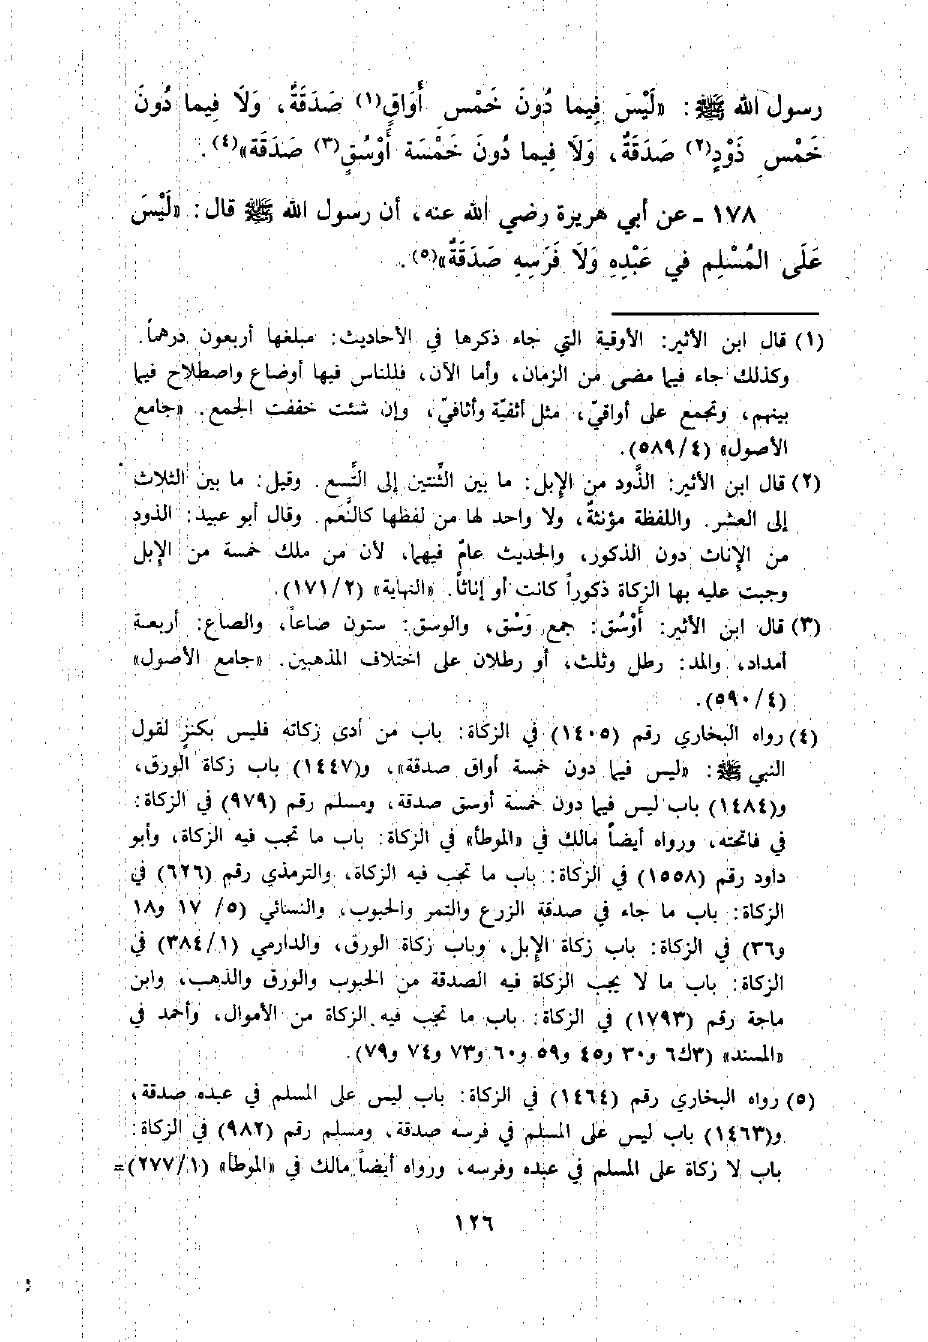 رسول الله ﷺ: «لَيْسَ فِيما دُونَ خَمْسِ أَوَاقٍ(١) صَدَقَةٌ، وَلَا فِيما دُونَ
خَمْسِ ذَوْدٍ(٢) صَدَقَةٌ، وَلَا فِيما دُونَ خَمْسَة أَوْسُقٍ(٣) صَدَقَة»(٤).
١٧٨ ـ عن أبي هريرة رضي الله عنه، أن رسول الله ﷺ قال: «لَيْسَ
عَلَى المُسْلِمِ في عَبْدِهِ وَلَا فَرَسِهِ صَدَقَةٌ»(٥).
(١) قال ابن الأثير: الأوقية التي جاء ذكرها في الأحاديث: مبلغها أربعون درهماً.
وكذلك جاء فيما مضى من الزمان، وأما الآن، فللناس فيها أوضاع واصطلاح فيما
بينهم، وتجمع على أواقيّ، مثل أثفيّة وأثافيّ، وإن شئت خففت الجمع. «جامع
الأصول» (٥٨٩/٤).
(٢) قال ابن الأثير: الذَّود من الإبل: ما بين الثِّنتين إلى التِّسع. وقيل: ما بين الثلاث
إلى العشر. واللفظة مؤنثةٌ، ولا واحد لها من لفظها كالنَّعم. وقال أبو عبيد: الذود
من الإناث دون الذكور، والحديث عامّ فيهما، لأن من ملك خمسة من الإبل
وجبت عليه بها الزكاة ذكوراً كانت أو إناثاً. «النهاية» (١٧١/٢).
(٣) قال ابن الأثير: أَوْسُق: جمع وَسْق، والوسق: ستون صاعاً، والصاع: أربعة
أمداد، والمد: رطل وثلث، أو رطلان على اختلاف المذهبين. «جامع الأصول»
(٥٩٠/٤).
(٤) رواه البخاري رقم (١٤٠٥) في الزكاة: باب من أدى زكاته فليس بكنزٍ لقول
النبي ﷺ: «ليس فيما دون خمسة أواق صدقة»، و(١٤٤٧) باب زكاة الورق،
و(١٤٨٤) باب ليس فيما دون خمسة أوسق صدقة، ومسلم رقم (٩٧٩) في الزكاة:
في فاتحته، ورواه أيضاً مالك في «الموطأ» في الزكاة: باب ما تجب فيه الزكاة، وأبو
داود رقم (١٥٥٨) في الزكاة: باب ما تجب فيه الزكاة، والترمذي رقم (٦٢٦) في
الزكاة: باب ما جاء في صدقة الزرع والتمر والحبوب، والنسائي (٥/ ١٧ و١٨
و٣٦) في الزكاة: باب زكاة الإبل، وباب زكاة الورق، والدارمي (٣٨٤/١) في
الزكاة: باب ما لا يجب الزكاة فيه الصدقة من الحبوب والورق والذهب، وابن
ماجة رقم (١٧٩٣) في الزكاة: باب ما تجب فيه الزكاة من الأموال، وأحمد في
«المسند» (٣ك٦ و٣٠ و٤٥ و٥٩ و٦٠ و٧٣ و٧٤ و٧٩).
(٥) رواه البخاري رقم (١٤٦٤) في الزكاة: باب ليس على المسلم في عبده صدقة،
و(١٤٦٣) باب ليس على المسلم في فرسه صدقة، ومسلم رقم (٩٨٢) في الزكاة:
باب لا زكاة على المسلم في عبده وفرسه، ورواه أيضاً مالك في «الموطأ» (٢٧٧/١)=
١٢٦